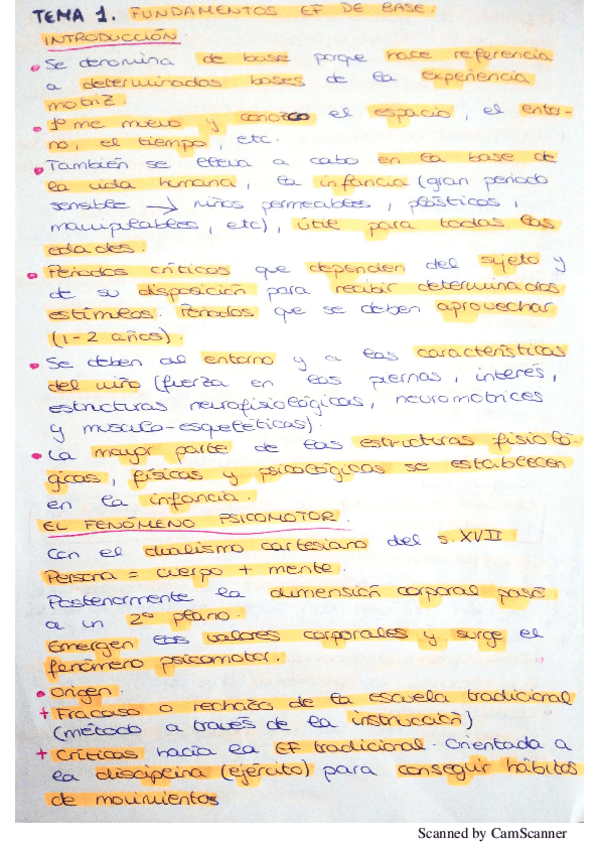 TEMA 1. FUNDAMENTOS EF DE BASE.
INTRODUCCIÓN
• Se denomina de base porque hace referencia
a determinadas bases de la experiencia
motriz.
• 1º me muevo y conozco el espacio, el entor-
no, el tiempo, etc.
• También se lleva a cabo en la base de
la vida humana, la infancia (gran periodo
sensible → niños permeables, plásticos,
manipulables, etc), útil para todas las
edades.
• Periodos críticos que dependen del sujeto y
de su disposición para recibir determinados
estímulos. Periodos que se deben aprovechar
(1-2 años).
• Se deben al entorno y a las características
del niño (fuerza en las piernas, interés,
estructuras neurofisiológicas, neuromotrices
y musculo-esqueléticas).
• La mayor parte de las estructuras fisioló-
gicas, físicas y psicológicas se establecen
en la infancia.
EL FENÓMENO PSICOMOTOR.
Con el dualismo cartesiano del s.XVII
Persona = cuerpo + mente.
Posteriormente la dimensión corporal pasó
a un 2º plano.
Emergen los valores corporales y surge el
fenómeno psicomotor.
• Origen.
+ Fracaso o rechazo de la escuela tradicional
(método a través de la instrucción)
+ Críticas hacia la EF tradicional. Orientada a
la disciplina (ejército) para conseguir hábitos
de movimientos
Scanned by CamScanner